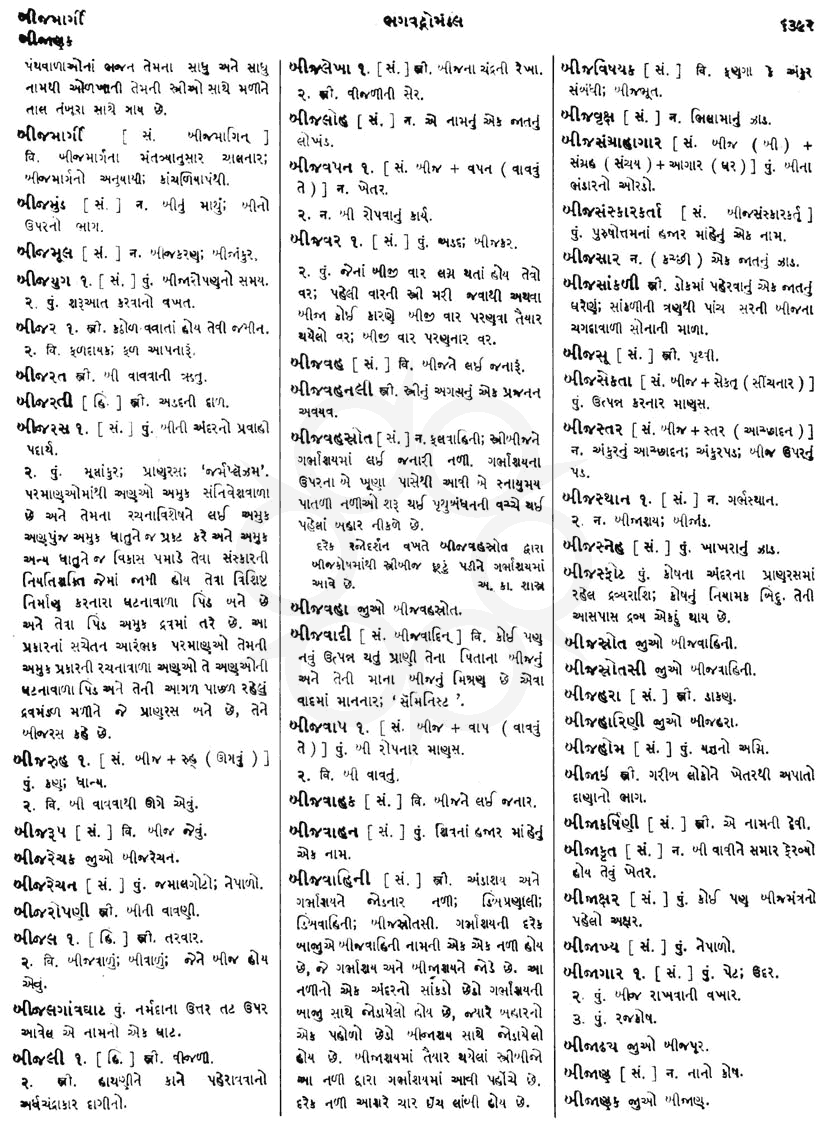 બીજમાર્ગી
બીજાણુક
ભગવદ્ગોમંડલ
૬૩૫૨
પંથવાળાઓનાં ભજન તેમના સાધુ અને સાધુ
નામથી ઓળખાતી તેમની સ્ત્રીઓ સાથે મળીને
તાલ તંબૂરા સાથે ગાય છે.
બીજમાર્ગી [ સં. બીજમાગિન્ ]
વિ. બીજમાર્ગના મંતવ્યાનુસાર ચાલનાર;
બીજમાર્ગનો અનુયાયી; કાંચળિયાપંથી.
બીજમુંડ [ સં. ] ન. બીનું માથું; બીનો
ઉપરનો ભાગ.
બીજમૂલ [ સં. ] ન. બીજકરણ; બીજાંકુર.
બીજયુગ ૧. [ સં. ] પું. બીજારોપણનો સમય.
૨. પું. શરૂઆત કરવાનો વખત.
બીજર ૧. સ્ત્રી. કઠોળ વવાતાં હોય તેવી જમીન.
૨. વિ. ફળદાયક; ફળ આપનારું.
બીજરત સ્ત્રી. બી વાવવાની ઋતુ.
બીજરતી [ હિં. ] સ્ત્રી. અડદની દાળ.
બીજરસ ૧. [ સં. ] પું. બીની અંદરનો પ્રવાહી
પદાર્થ.
૨. પું. મૂલાંકુર; પ્રાણરસ; ‘જર્મપ્લેઝમ’.
પરમાણુઓમાંથી અણુઓ અમુક સંનિવેશવાળા
છે અને તેમના રચનાવિશેષને લઈ અમુક
અણુપુંજ અમુક ધાતુને જ પ્રકટ કરે અને અમુક
અન્ય ધાતુને જ વિકાસ પમાડે તેવા સંસ્કારની
નિયતિશક્તિ જેમાં જામી હોય તેવા વિશિષ્ટ
નિર્માણ કરનારા ઘટનાવાળા પિંડ બને છે
અને તેવા પિંડ અમુક દ્રવમાં તરે છે. આ
પ્રકારનાં સચેતન આરંભક પરમાણુઓ તેમની
અમુક પ્રકારની રચનાવાળા અણુઓ તે અણુઓની
ઘટનાવાળા પિંડ અને તેની આગળ પાછળ રહેલું
દ્રવમંડળ મળીને જે પ્રાણરસ બને છે, તેને
બીજરસ કહે છે.
બીજરુહ ૧. [ સં. બીજ + રુહ્ ( ઊગવું ) ]
પું. કણ; ધાન્ય.
૨. વિ. બી વાવવાથી ઊગે એવું.
બીજરૂપ [ સં. ] વિ. બીજ જેવું.
બીજરેચક જુઓ બીજરેચન.
બીજરેચન [ સં. ] પું. જમાલગોટો; નેપાળો.
બીજરોપણી સ્ત્રી. બીની વાવણી.
બીજલ ૧. [ હિં. ] સ્ત્રી. તરવાર.
૨. વિ. બીજવાળું; બીવાળું; જેને બીજ હોય
એવું.
બીજલગાંવઘાટ પું. નર્મદાના ઉત્તર તટ ઉપર
આવેલ એ નામનો એક ઘાટ.
બીજલી ૧. [ હિં. ] સ્ત્રી. વીજળી.
૨. સ્ત્રી. હાથણીને કાને પહેરાવવાનો
અર્ધચંદ્રાકાર દાગીનો.
બીજલેખા ૧. [ સં. ] સ્ત્રી. બીજના ચંદ્રની રેખા.
૨. સ્ત્રી. વીજળીની સેર.
બીજલોહ [ સં. ] ન. એ નામનું એક જાતનું
લોખંડ.
બીજવપન ૧. [ સં. બીજ + વપન ( વાવવું
તે ) ] ન. ખેતર.
૨. ન. બી રોપવાનું કાર્ય.
બીજવર ૧. [ સં. ] પું. અડદ; બીજકર.
૨. પું. જેનાં બીજી વાર લગ્ન થતાં હોય તેવો
વર; પહેલી વારની સ્ત્રી મરી જવાથી અથવા
બીજા કોઈ કારણે બીજી વાર પરણવા તૈયાર
થયેલો વર; બીજી વાર પરણનાર વર.
બીજવહ [ સં. ] વિ. બીજને લઈ જનારું.
બીજવહનલી સ્ત્રી. સ્ત્રીનું અગત્યનું એક પ્રજનન
અવયવ.
બીજવહસ્રોત [ સં. ] ન. ફલવાહિની; સ્ત્રીબીજને
ગર્ભાશયમાં લઈ જનારી નળી. ગર્ભાશયના
ઉપરના બે ખૂણા પાસેથી આવી બે સ્નાયુમય
પાતળી નળીઓ શરૂ થઈ પૃથુબંધનની વચ્ચે થઈ
પહેલાં બહાર નીકળે છે.
દરેક રજોદર્શન વખતે બીજવહસ્રોત દ્વારા
બીજકોષમાંથી સ્ત્રીબીજ છૂટું પડીને ગર્ભાશયમાં
આવે છે. અ. કા. શાસ્ત્ર
બીજવહા જુઓ બીજવહસ્રોત.
બીજવાદી [ સં. બીજવાદિન્ ] વિ. કોઈ પણ
નવું ઉત્પન્ન થતું પ્રાણી તેના પિતાના બીજનું
અને તેની માના બીજનું મિશ્રણ છે એવા
વાદમાં માનનાર; ‘ સૅમિનિસ્ટ ’.
બીજવાપ ૧. [ સં. બીજ + વાપ ( વાવવું
તે ) ] પું. બી રોપનાર માણસ.
૨. વિ. બી વાવતું.
બીજવાહક [ સં. ] વિ. બીજને લઈ જનાર.
બીજવાહન [ સં. ] પું. શિવનાં હજાર માંહેનું
એક નામ.
બીજવાહિની [ સં. ] સ્ત્રી. અંડાશય અને
ગર્ભાશયને જોડનાર નળી; ડિંબપ્રણાલી;
ડિંબવાહિની; બીજસ્રોતસી. ગર્ભાશયની દરેક
બાજુએ બીજવાહિની નામની એક એક નળી હોય
છે, જે ગર્ભાશય અને બીજાશયને જોડે છે. આ
નળીનો એક અંદરનો સાંકડો છેડો ગર્ભાશયની
બાજુ સાથે જોડાયેલો હોય છે, જ્યારે બહારનો
એક પહોળો છેડો બીજાશય સાથે જોડાયેલો
હોય છે. બીજાશયમાં તૈયાર થયેલાં સ્ત્રીબીજો
આ નળી દ્વારા ગર્ભાશયમાં આવી પહોંચે છે.
દરેક નળી આશરે ચાર ઇંચ લાંબી હોય છે.
બીજવિષયક [ સં. ] વિ. ફણગા કે અંકુર
સંબંધી; બીજભૂત.
બીજવૃક્ષ [ સં. ] ન. ભિલામાનું ઝાડ.
બીજસંગ્રાહાગાર [ સં. બીજ ( બી ) +
સંગ્રહ ( સંચય ) + આગાર ( ઘર ) ] પું. બીના
ભંડારનો ઓરડો.
બીજસંસ્કારકર્તા [ સં. બીજસંસ્કારકર્તૃ ]
પું. પુરુષોત્તમનાં હજાર માંહેનું એક નામ.
બીજસાર ન. ( કચ્છી ) એક જાતનું ઝાડ.
બીજસાંકળી સ્ત્રી. ડોકમાં પહેરવાનું એક જાતનું
ઘરેણું; સાંકળીની ત્રણથી પાંચ સરની બીજના
ચગદાવાળી સોનાની માળા.
બીજસૂ [ સં. ] સ્ત્રી. પૃથ્વી.
બીજસેકતા [ સં. બીજ + સેકતૃ ( સીંચનાર ) ]
પું. ઉત્પન્ન કરનાર માણસ.
બીજસ્તર [ સં. બીજ + સ્તર ( આચ્છાદન ) ]
ન. અંકુરનું આચ્છાદન; અંકુરપડ; બીજ ઉપરનું
પડ.
બીજસ્થાન ૧. [ સં. ] ન. ગર્ભસ્થાન.
૨. ન. બીજાશય; બીજાંડ.
બીજસ્નેહ [ સં. ] પું. ખાખરાનું ઝાડ.
બીજસ્ફોટ પું. કોષના અંદરના પ્રાણરસમાં
રહેલ દ્રવ્યરાશિ; કોષનું નિયામક બિંદુ. તેની
આસપાસ દ્રવ્ય એકઠું થાય છે.
બીજસ્રોત જુઓ બીજવાહિની.
બીજસ્રોતસી જુઓ બીજવાહિની.
બીજહરા [ સં. ] સ્ત્રી. ડાકણ.
બીજહારિણી જુઓ બીજહરા.
બીજહોમ [ સં. ] પું. યજ્ઞનો અગ્નિ.
બીજાઈ સ્ત્રી. ગરીબ લોકોને ખેતરથી અપાતો
દાણાનો ભાગ.
બીજાકર્ષિણી [ સં. ] સ્ત્રી. એ નામની દેવી.
બીજાકૃત [ સં. ] ન. બી વાવીને સમાર ફેરવ્યો
હોય તેવું ખેતર.
બીજાક્ષર [ સં. ] પું. કોઈ પણ બીજમંત્રનો
પહેલો અક્ષર.
બીજાખ્ય [ સં. ] પું. નેપાળો.
બીજાગાર ૧. [ સં. ] પું. પેટ; ઉદર.
૨. પું. બીજ રાખવાની વખાર.
૩. પું. રજકોષ.
બીજાઢ્ય જુઓ બીજપૂર.
બીજાણુ [ સં. ] ન. નાનો કોષ.
બીજાણુક જુઓ બીજાણુ.